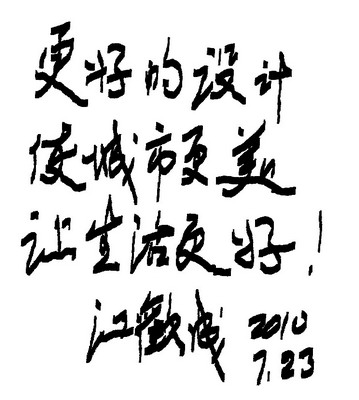 更好的设计
使城市更美
让生活更好！
江欢成 2010
7.23